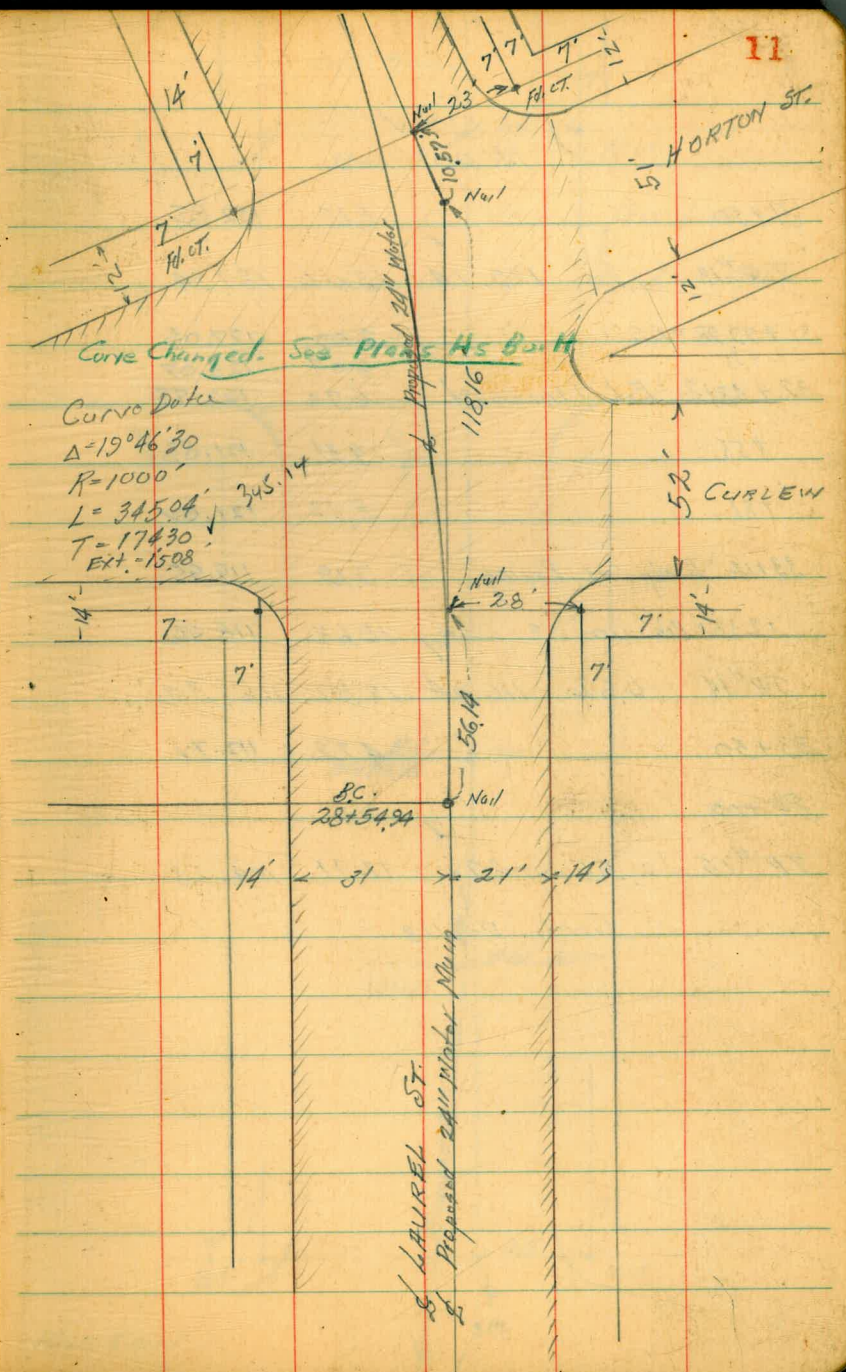 11
14'
7'
7'
Fd. CT.
12'
7' 7' 7' 12'
Nail
23
Fd. CT.
10.57
Nail
51' HORTON ST.
12'
℄ Proposed 24" Water
118.16
Curve Changed. See Plans As Built
Curve Data
Δ=19°46'30
R=1000'
L=345.04' 345.14
T=174.30
Ext.=15.08
52' CURLEW
Nail
28'
14'
7'
7'
7'
7'
14'
56.14
B.C.
28+54.94
Nail
14' 31 21' 14'
℄ LAUREL ST.
℄ Proposed 24" Water Main